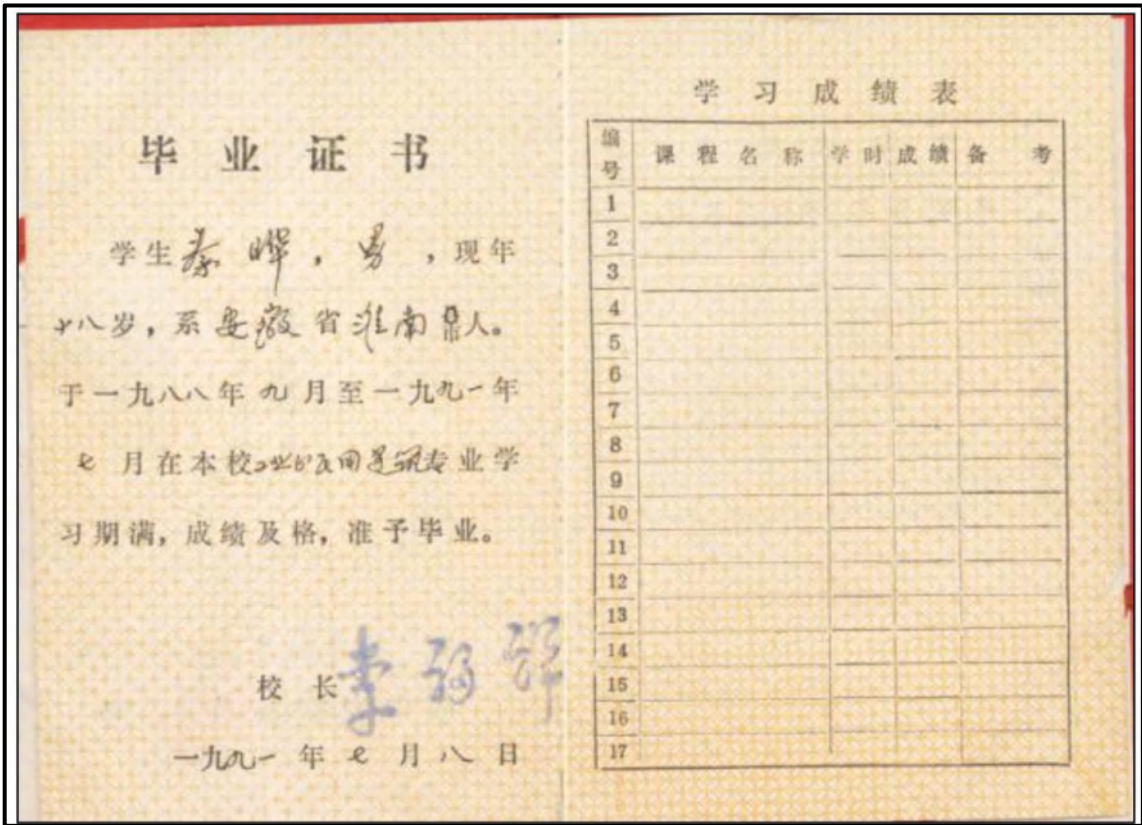 毕业证书
学生秦晖，男，现年
十八岁，系安徽省淮南市人。
于一九八八年九月至一九九一年
七月在本校工业与民用建筑专业学
习期满，成绩及格，准予毕业。
校长李
一九九一年七月八日
学习成绩表
编号 课程名称 学时 成绩 备考
1
2
3
4
5
6
7
8
9
10
11
12
13
14
15
16
17